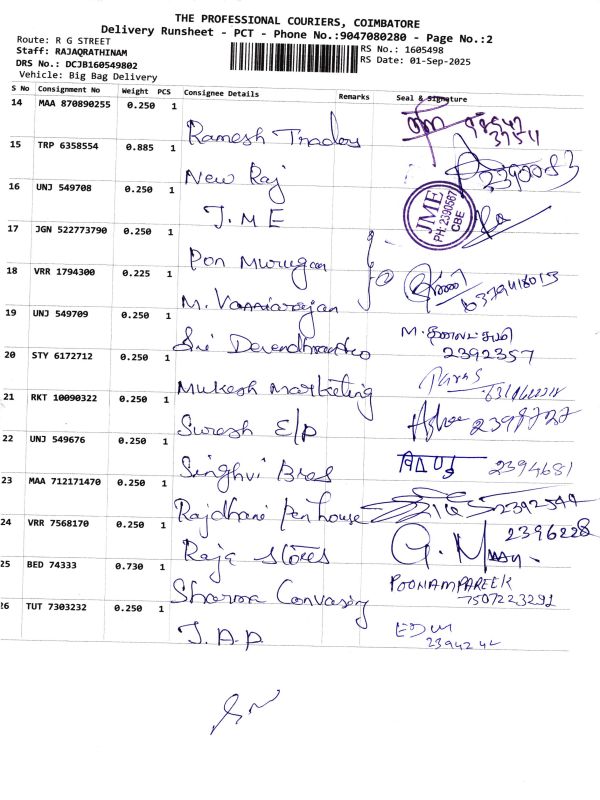 THE PROFESSIONAL COURIERS, COIMBATORE
Delivery Runsheet - PCT - Phone No.:9047080280 - Page No.:2
Route: R G STREET
Staff: RAJAQRATHINAM
RS No.: 1605498
DRS No.: DCJB160549802
RS Date: 01-Sep-2025
Vehicle: Big Bag Delivery
S No Consignment No Weight PCS Consignee Details Remarks Seal & Signature
14 MAA 870890255 0.250 1
Ramesh Traders
15 TRP 6358554 0.885 1
New Raj
16 UNJ 549708 0.250 1
J.M E
JME
PH: 2390567
CBE
17 JGN 522773790 0.250 1
Pon Murugan
18 VRR 1794300 0.225 1
19 UNJ 549709 0.250 1
2392357
20 STY 6172712 0.250 1
Mukesh Marketing
21 RKT 10090322 0.250 1
Suresh E/p
22 UNJ 549676 0.250 1
Singhvi Bros 2394681
23 MAA 712171470 0.250 1
Rajdhani Pen house
24 VRR 7568170 0.250 1
2396228
Raja Stores
25 BED 74333 0.730 1
POONAM PAREEK
7507223291
Sharma
26 TUT 7303232 0.250 1
J.A.P